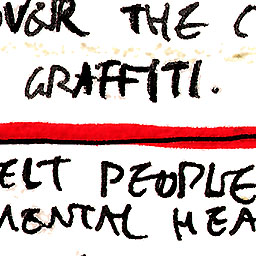 OVER THE C
GRAFFITI.
ELT PEOPLE
MENTAL HEA